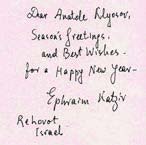 Dear Anatole Klyosov,
Season's Greetings,
and Best Wishes
for a Happy New Year-
Ephraim Katzir
Rehovot
Israel